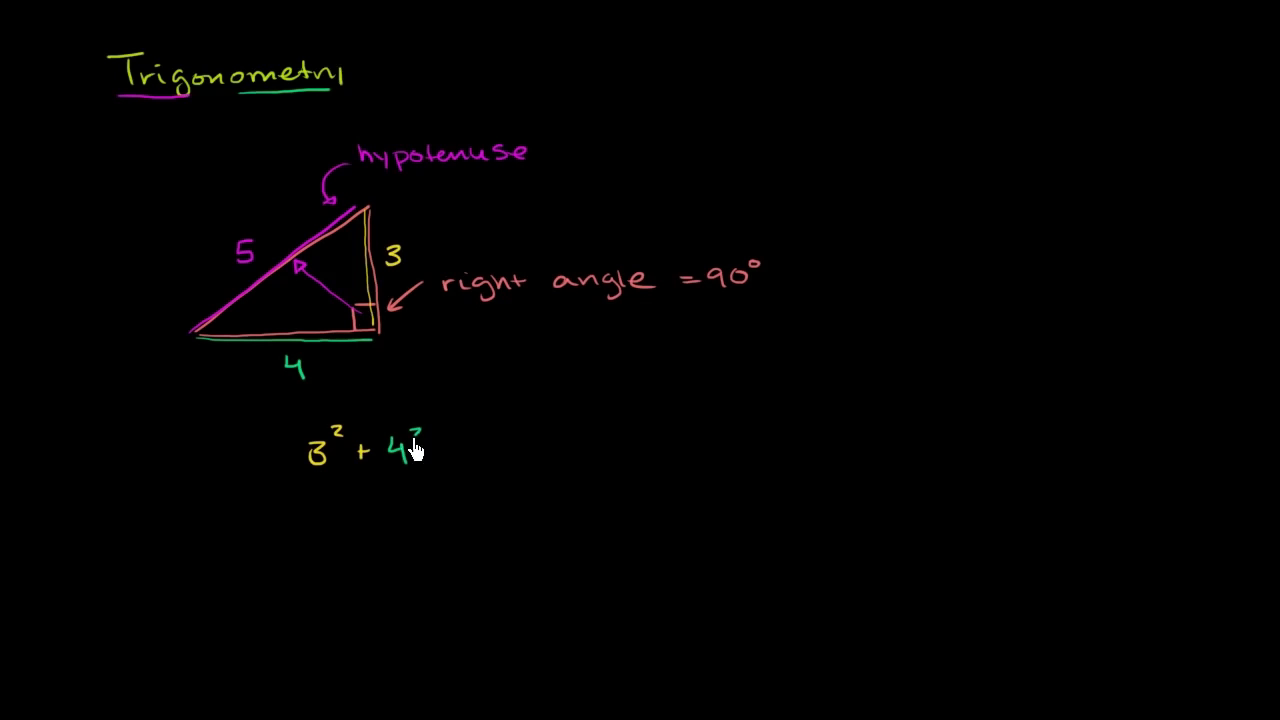 Trigonometry
hypotenuse
5
3
right angle = 90°
4
3² + 4²